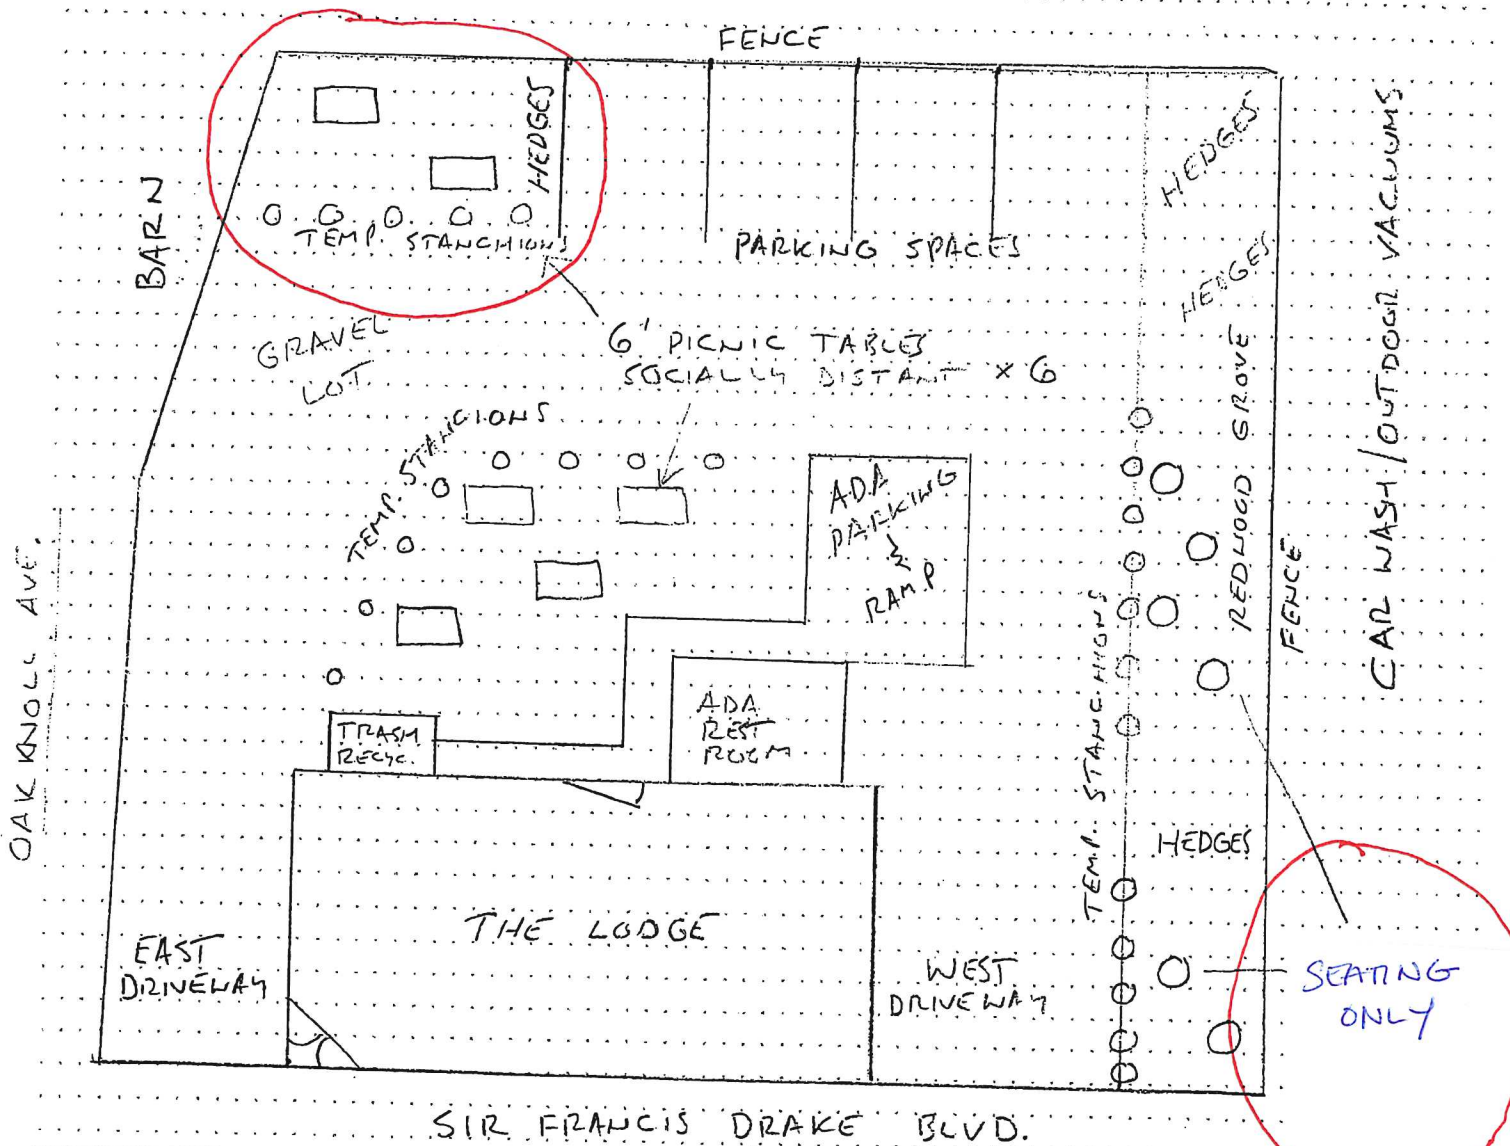 FENCE
HEDGES
TEMP. STANCHIONS
BARN
PARKING SPACES
HEDGES
HEDGES
CAR WASH/OUTDOOR VACUUMS
GRAVEL
LOT
6' PICNIC TABLES
SOCIALLY DISTANT x 6
TEMP. STANCIONS
ADA
PARKING
&
RAMP
REDWOOD GROVE
FENCE
OAK KNOLL AVE.
TRASH
RECYC.
ADA
REST
ROOM
TEMP. STANCHIONS
HEDGES
THE LODGE
EAST
DRIVEWAY
WEST
DRIVEWAY
SEATING
ONLY
SIR FRANCIS DRAKE BLVD.